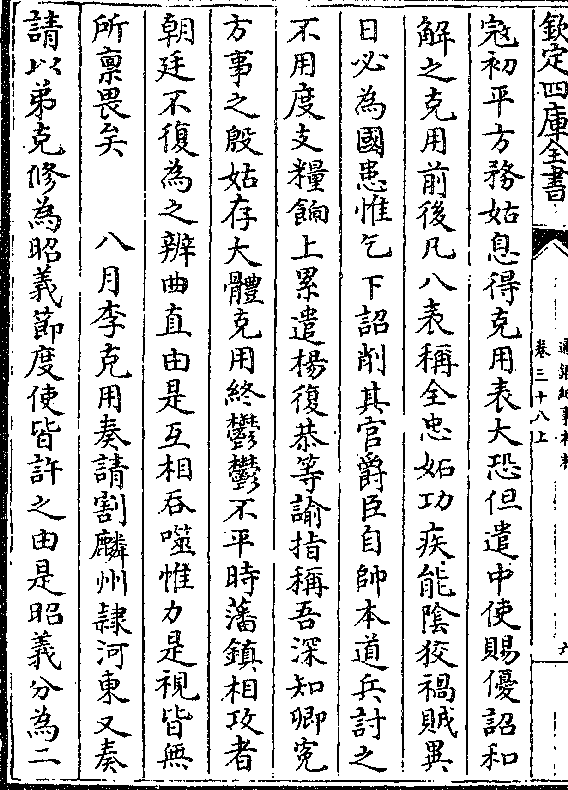 欽定四庫全書
通鑑紀事本末
卷三十八上
六
寇初平方務姑息得克用表大恐但遣中使賜優詔和
解之克用前後凡八表稱全忠妬功疾能陰狡禍賊異
日必為國患惟乞下詔削其官爵臣自帥本道兵討之
不用度支糧餉上累遣楊復恭等諭指稱吾深知卿寃
方事之殷姑存大體克用終鬱鬱不平時藩鎮相攻者
朝廷不復為之辨曲直由是互相吞噬惟力是視皆無
所禀畏矣　　八月李克用奏請割麟州𨽻河東又奏
請以弟克修為昭義節度使皆許之由是昭義分為二